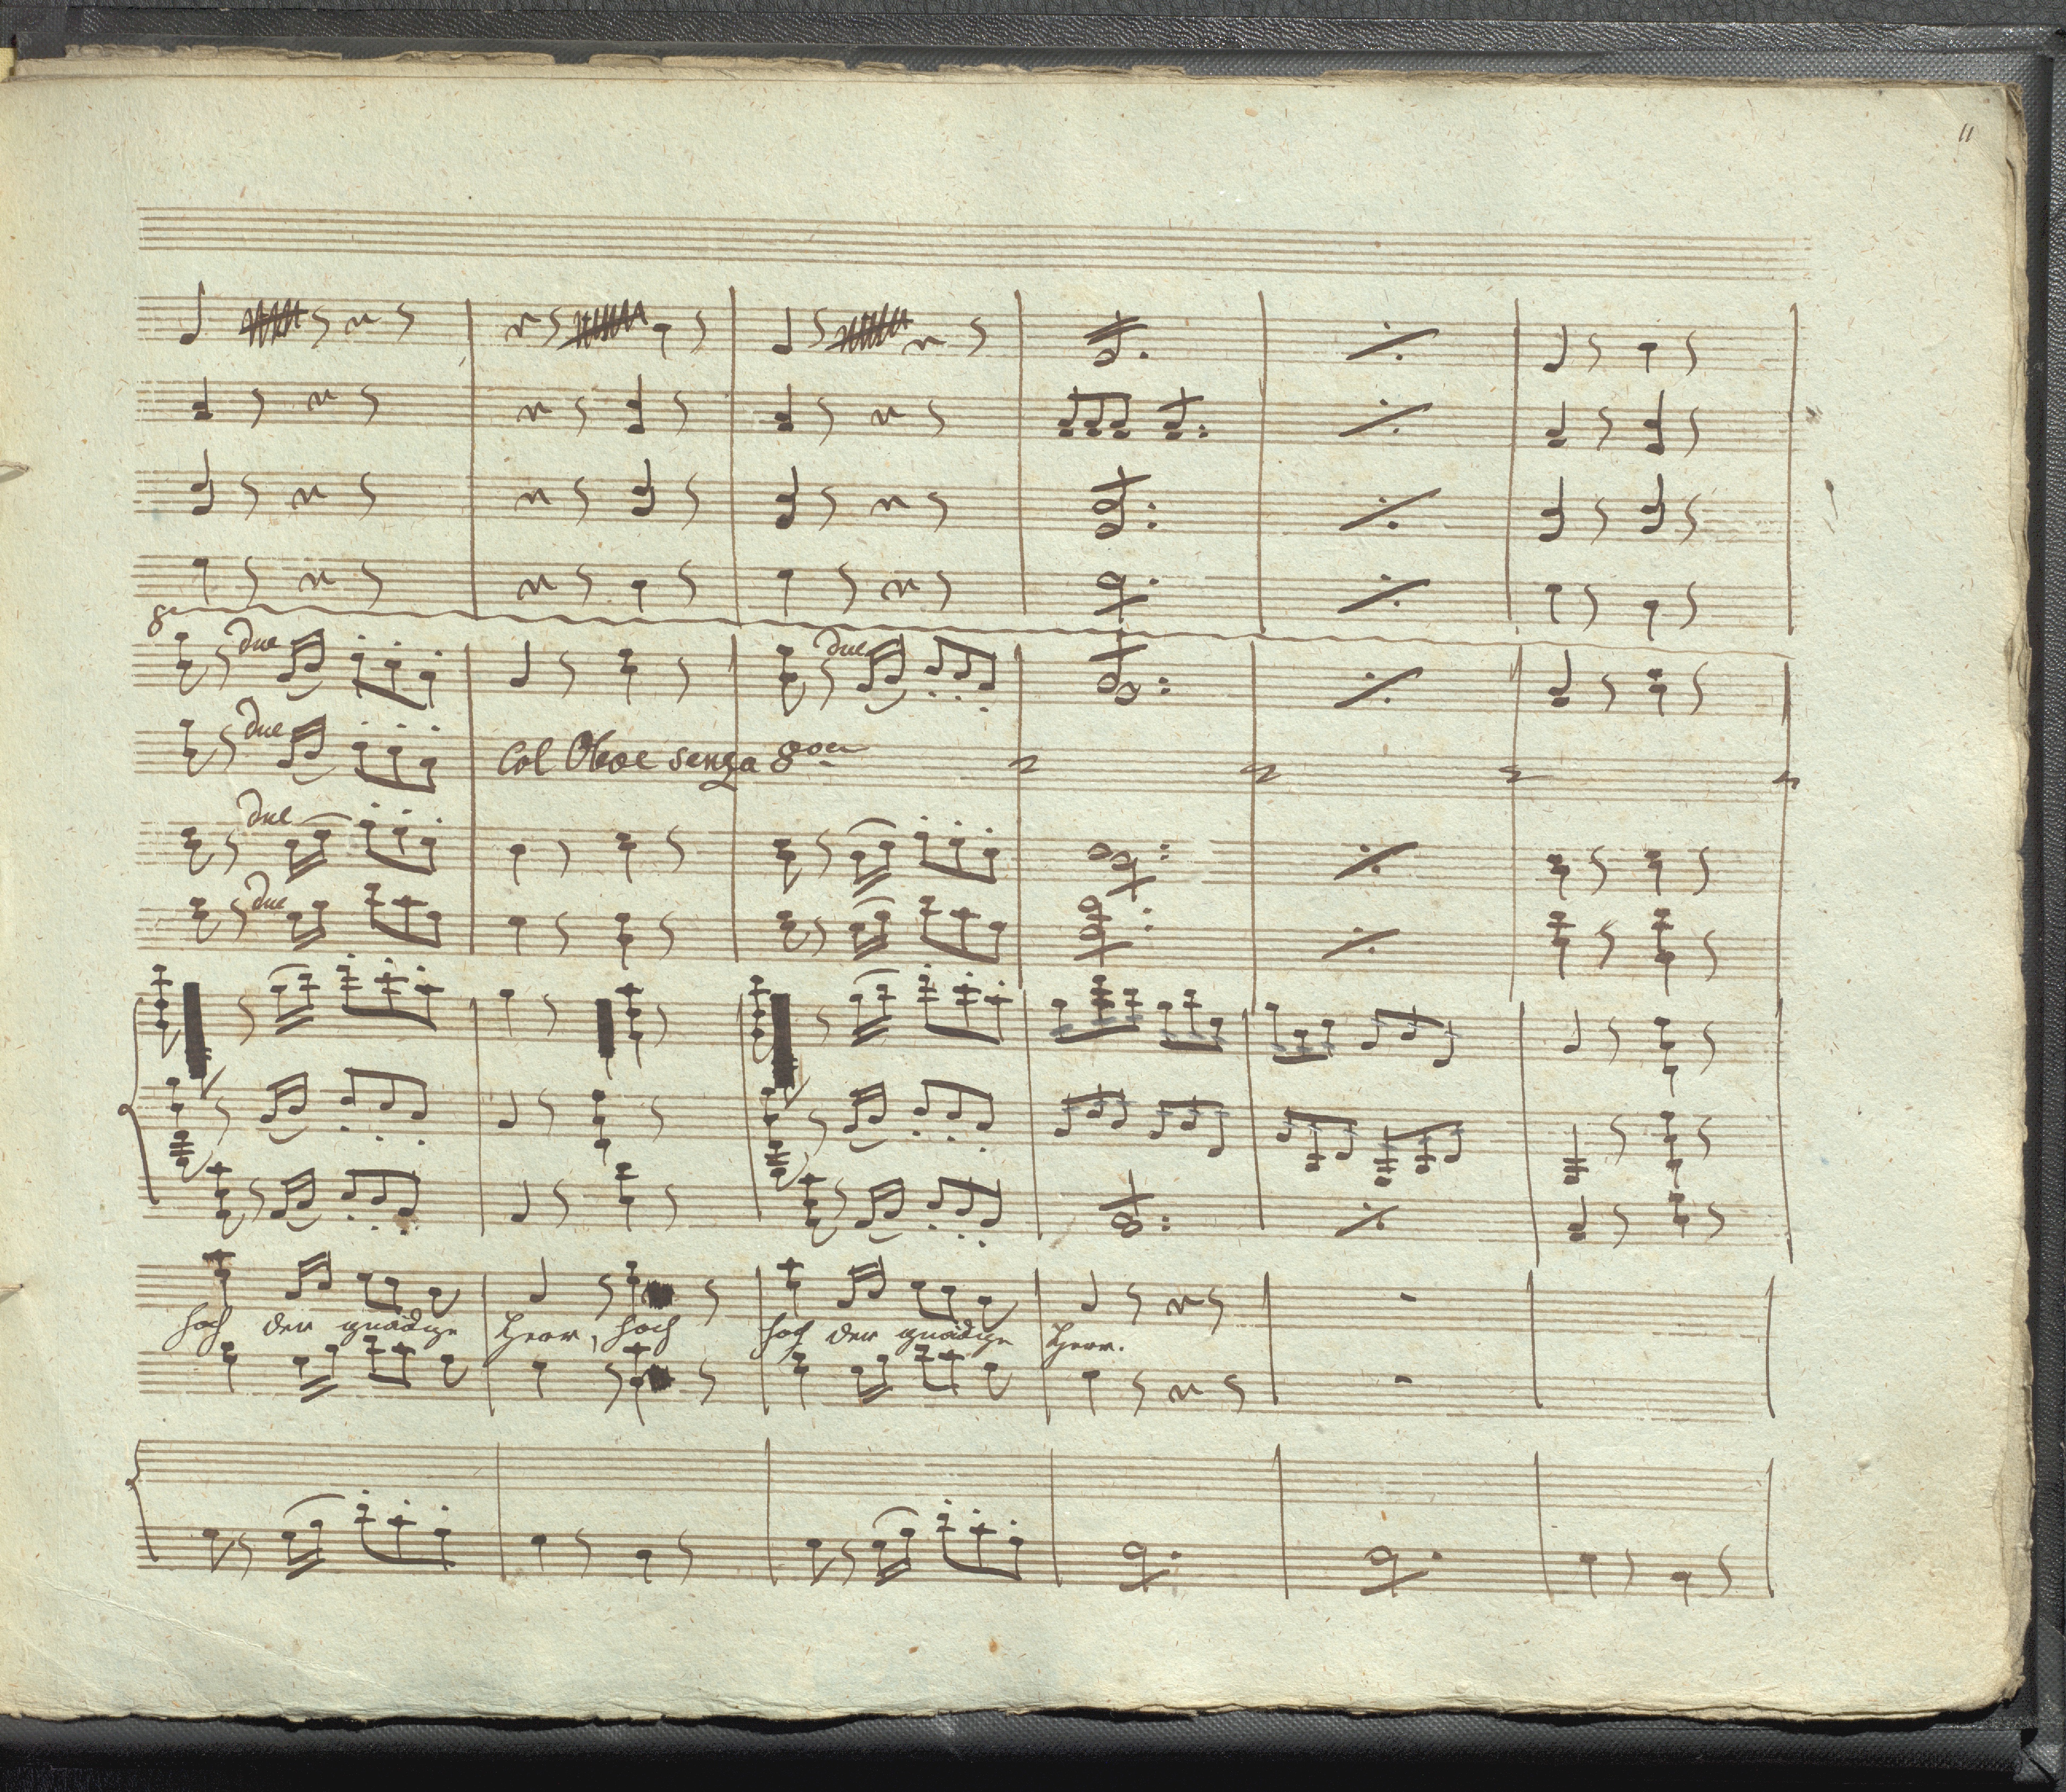 11
8va
due due
due
Col Oboe senza 8va
due
due
hoch der gnädige Herr, hoch hoch der gnädige Herr.